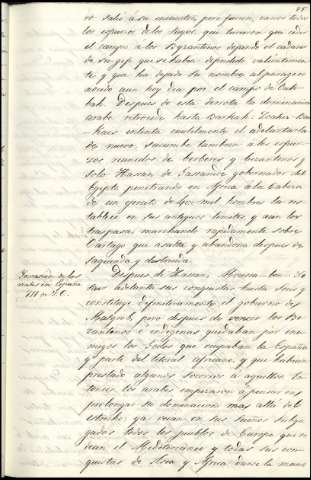 45
no salió á su encuentro, pero fueron vanos todos
los esfuerzos de los suyos que tuvieron que ceder
el campo á los Bizantinos dejando el cadaver
de su jefe que se habia defendido valientemen-
te y que ha dejado su nombre al parage en
donde aun hoy dia por el campo de Ouk-
bah. Despues de esta derrota la dominacion
arabe retrocede hasta Barkah. Zoheir Ben
Kais intenta inutilmente el adelantarla
de nuevo, sucumbe tambien á los esfuer-
zos reunidos de berberes y bizantinos y
solo Hassan de Gassanide gobernador del
Egipto penetrando en Africa á la cabeza
de un ejercito de 40 mil hombres la res-
tablece en sus antiguos limites, y aun los
traspasa marchando rapidamente sobre
Cartago que asalta y abandona despues de
saqueada y destruida.
Invasion de los
arabes en España
711 n. J. C.
Despues de Hassan, Moussa-ben-No-
seir adelanta sus conquistas hasta Sus y
constituye definitivamente el gobierno del
Magreb, pero despues de vencer los Bi-
zantinos é indigenas quedaban por ene-
migos los Godos que ocupaban la España
y parte del litoral africano, y que habian
prestado algunos socorros á aquellos. En-
tonces los arabes empezaron á pensar en
prolongar su dominacion mas allá del
estrecho; ya veian en sus sueños subyu-
gados todos los pueblos de Europa que ro-
dean el Mediterráneo y todas sus con-
quistas de Asia y Africa darse la mano